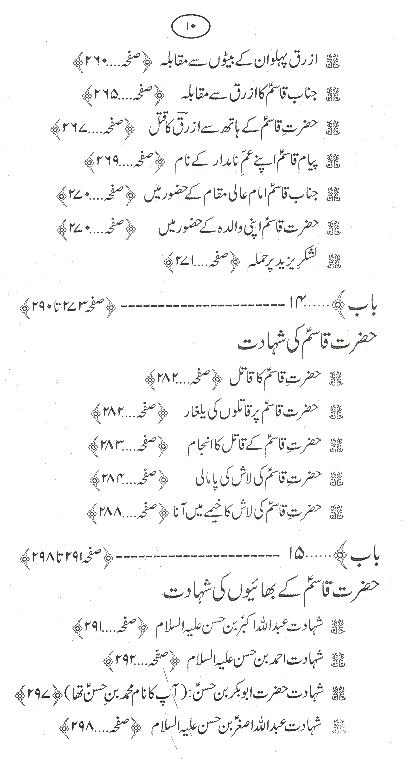 ۱۰
ازرق پہلوان کے بیٹوں سے مقابلہ ﴿صفحہ....۲۶۰﴾
جناب قاسمؑ کا ازرق سے مقابلہ ﴿صفحہ....۲۶۵﴾
حضرت قاسمؑ کے ہاتھ سے ازرق کا قتل ﴿صفحہ....۲۶۷﴾
پیام قاسمؑ اپنے عم نامدار کے نام ﴿صفحہ....۲۶۹﴾
جناب قاسمؑ امام عالی مقام کے حضور میں ﴿صفحہ....۲۷۰﴾
حضرت قاسمؑ اپنی والدہ کے حضور میں ﴿صفحہ....۲۷۰﴾
لشکرِ یزید پر حملہ ﴿صفحہ....۲۷۱﴾
باب ﴾......۱۴ ---------------------- ﴿صفحہ ۲۷۳ تا ۲۹۰﴾
حضرت قاسمؑ کی شہادت
حضرتِ قاسمؑ کا قاتل ﴿صفحہ....۲۸۲﴾
حضرت قاسمؑ پر قاتلوں کی یلغار ﴿صفحہ....۲۸۲﴾
حضرت قاسمؑ کے قاتل کا انجام ﴿صفحہ....۲۸۳﴾
حضرت قاسمؑ کی لاش کی پامالی ﴿صفحہ....۲۸۴﴾
حضرت قاسمؑ کی لاش کا خیمے میں آنا ﴿صفحہ....۲۸۸﴾
باب ﴾......۱۵ ---------------------- ﴿صفحہ ۲۹۱ تا ۲۹۸﴾
حضرت قاسمؑ کے بھائیوں کی شہادت
شہادت عبداللہ اکبرؑ بن حسن علیہ السلام ﴿صفحہ....۲۹۱﴾
شہادت احمد بن حسن علیہ السلام ﴿صفحہ....۲۹۲﴾
شہادت حضرت ابوبکر بن حسنؑ: (آپ کا نام محمد بن حسنؑ تھا) ﴿۲۹۷﴾
شہادت عبداللہ اصغرؑ بن حسن علیہ السلام ﴿صفحہ....۲۹۸﴾